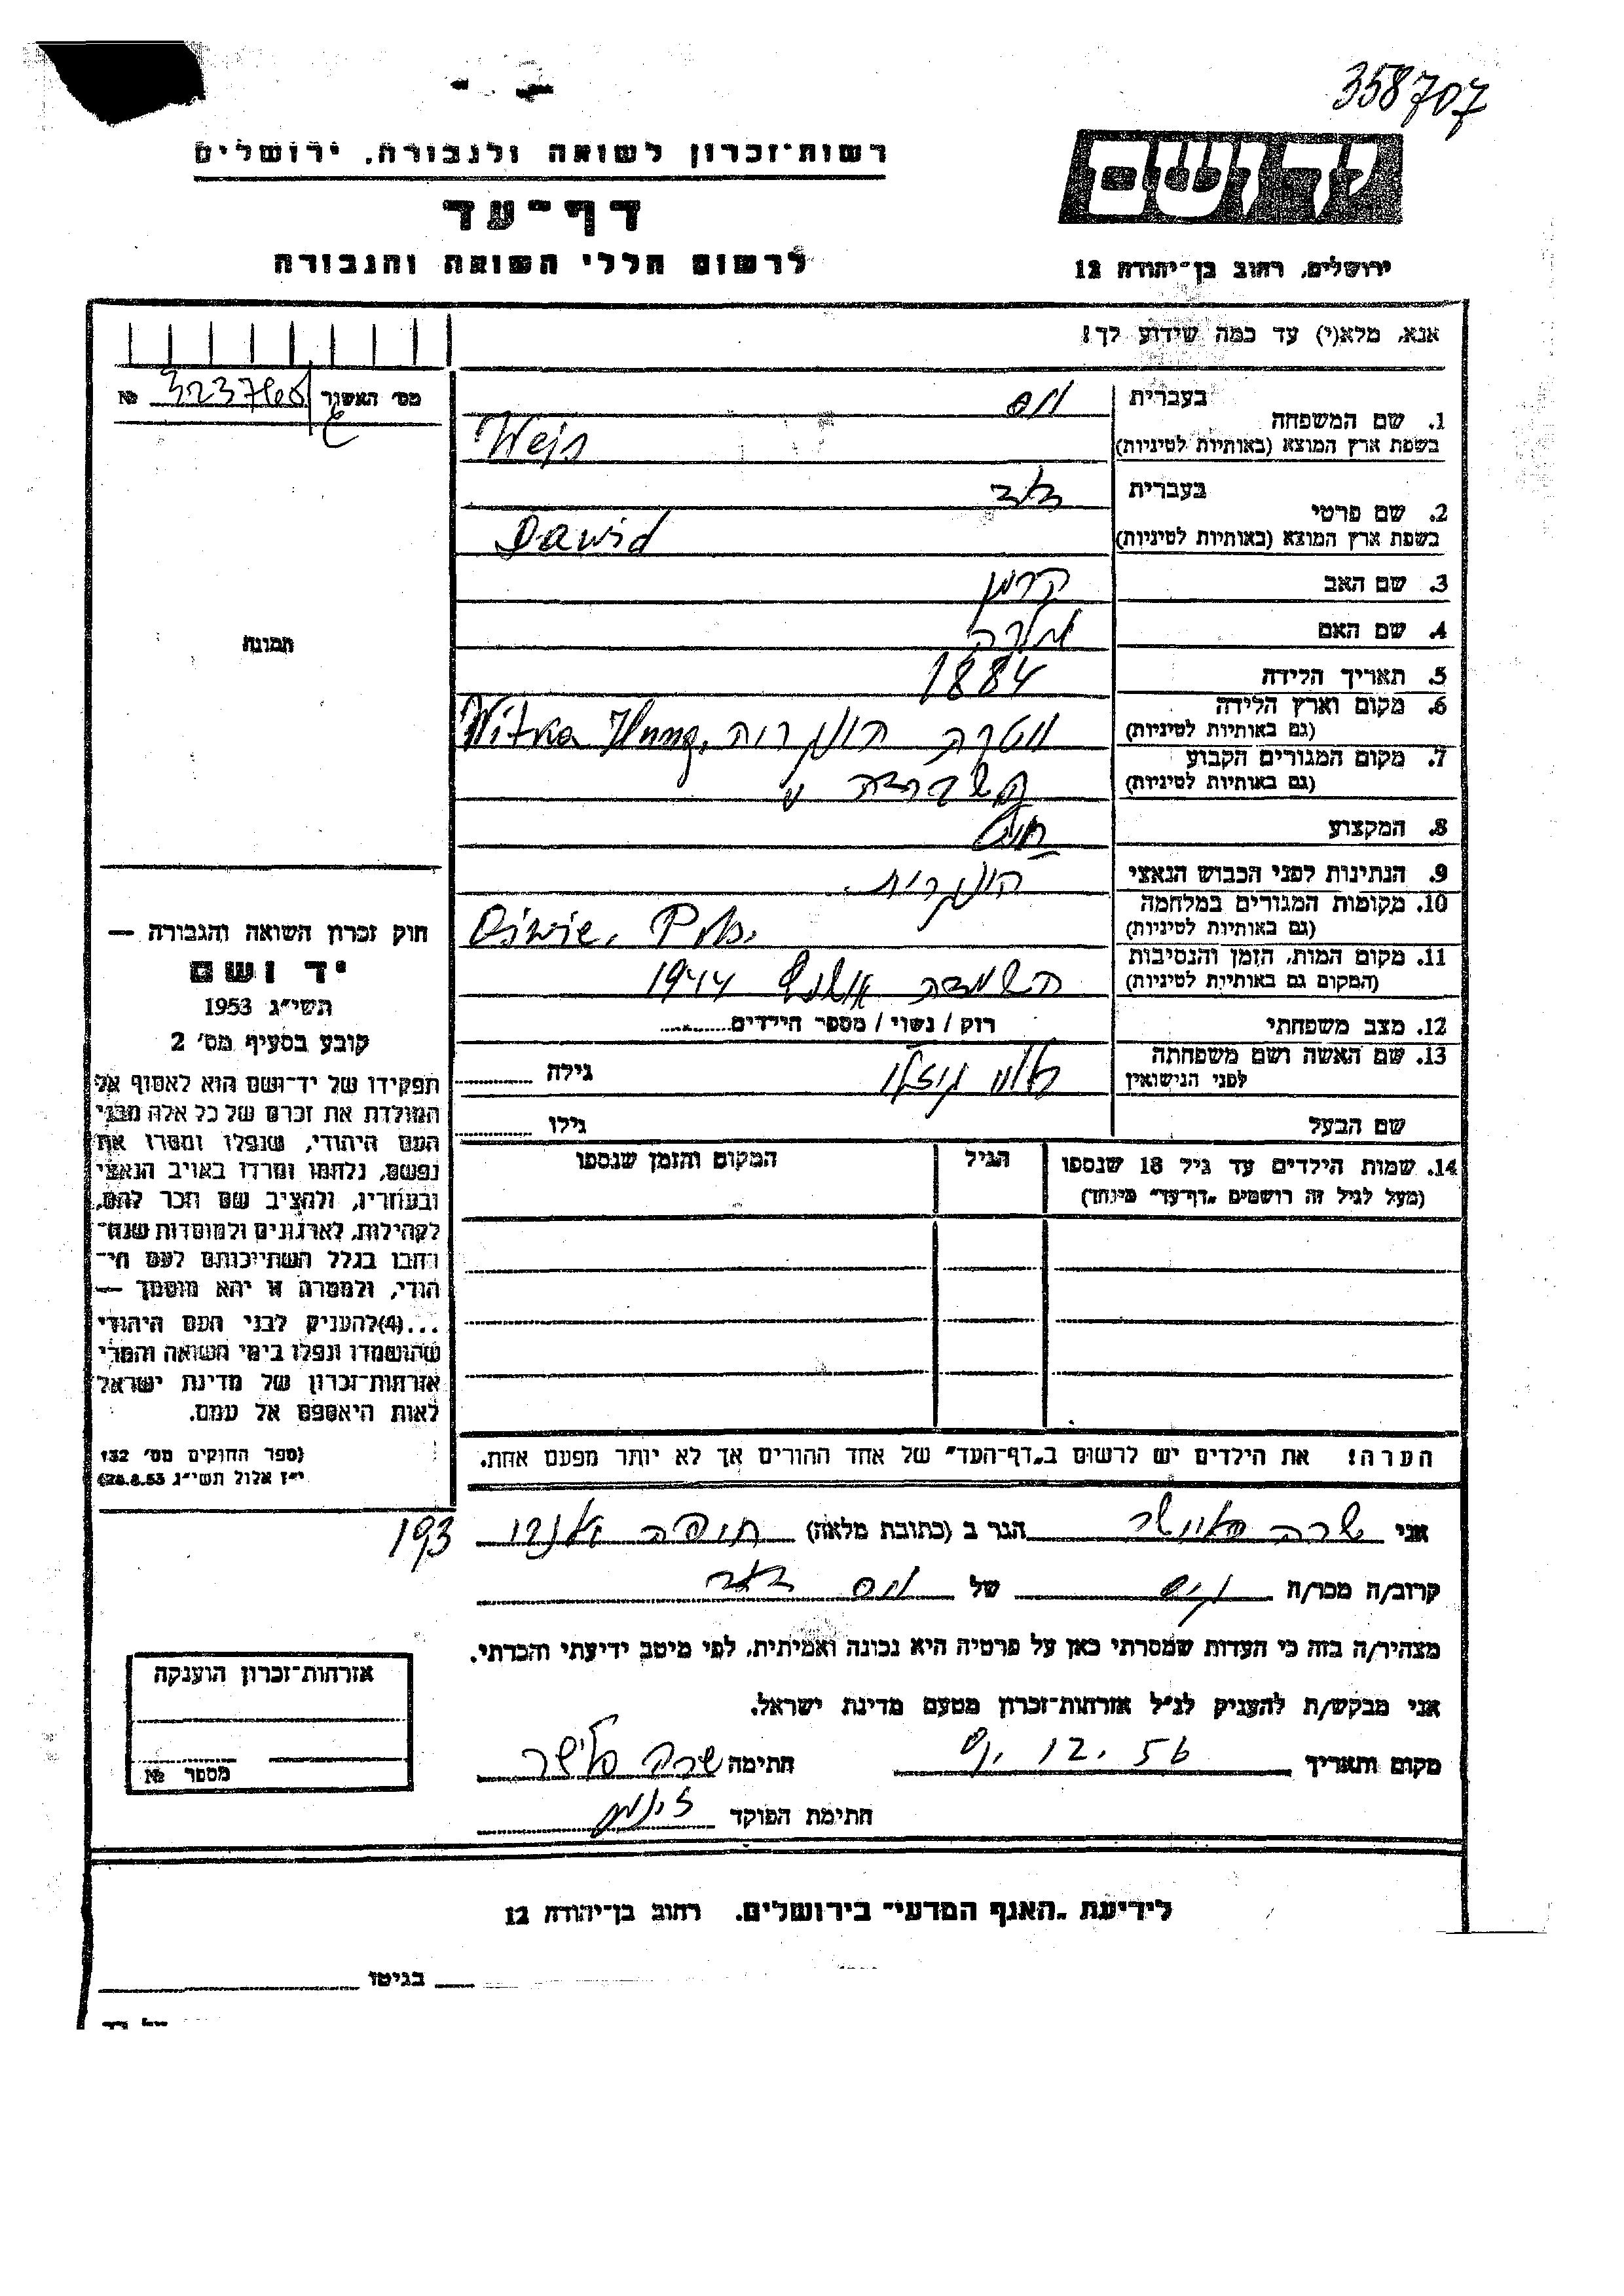 358707
יד ושם
רשות־זכרון לשואה ולגבורה, ירושלים
דף־עד
לרשום חללי השואה והגבורה
ירושלים, רחוב בן־יהודה 12
אנא, מלא(י) עד כמה שידוע לך!
מס׳ האשור 323768 №
בעברית
1. שם המשפחה
בשפת ארץ המוצא (באותיות לטיניות) Wejs
בעברית דוד
2. שם פרטי
בשפת ארץ המוצא (באותיות לטיניות) Dawid
3. שם האב
4. שם האם
5. תאריך הלידה 1884
6. מקום וארץ הלידה הונגריה Witka Hung.
(גם באותיות לטיניות)
7. מקום המגורים הקבוע
(גם באותיות לטיניות)
8. המקצוע
9. הנתינות לפני הכבוש הנאצי הונגרית.
10. מקומות המגורים במלחמה
(גם באותיות לטיניות)
11. מקום המות, הזמן והנסיבות 1944
(המקום גם באותיות לטיניות)
12. מצב משפחתי רוק / נשוי / מספר הילדים
13. שם האשה ושם משפחתה
לפני הנישואין גילה
שם הבעל גילו
14. שמות הילדים עד גיל 18 שנספו הגיל המקום והזמן שנספו
(מעל לגיל זה רושמים „דף־עד״ מיוחד)
הערה! את הילדים יש לרשום ב„דף־העד״ של אחד ההורים אך לא יותר מפעם אחת.
תמונה
חוק זכרון השואה והגבורה —
יד ושם
תשי״ג 1953
קובע בסעיף מס׳ 2
תפקידו של יד־ושם הוא לאסוף אל
המולדת את זכרם של כל אלה מבני
העם היהודי, שנפלו ומסרו את
נפשם, נלחמו ומרדו באויב הנאצי
ובעוזריו, ולהציב שם וזכר להם,
לקהילות, לארגונים ולמוסדות שנח־
רבו בגלל השתייכותם לעם הי־
הודי, ולמטרה זו יהא מוסמך —
...(4)להעניק לבני העם היהודי
שהושמדו ונפלו בימי השואה והמרי
אזרחות־זכרון של מדינת ישראל
לאות היאספם אל עמם.
(ספר החוקים מס׳ 132
י״ז אלול תשי״ג 28.8.53)
אני שרה הגר ב (כתובת מלאה) חיפה 193
קרוב/ה מכר/ה של דוד
מצהיר/ה בזה כי העדות שמסרתי כאן על פרטיה היא נכונה ואמיתית, לפי מיטב ידיעתי והכרתי.
אני מבקש/ת להעניק לנ״ל אזרחות־זכרון מטעם מדינת ישראל.
מקום ותאריך 12.56 חתימה שרה
חתימת הפוקד
אזרחות־זכרון הוענקה
מספר №
לידיעת „האגף המדעי״ בירושלים, רחוב בן־יהודה 12
בגיטו